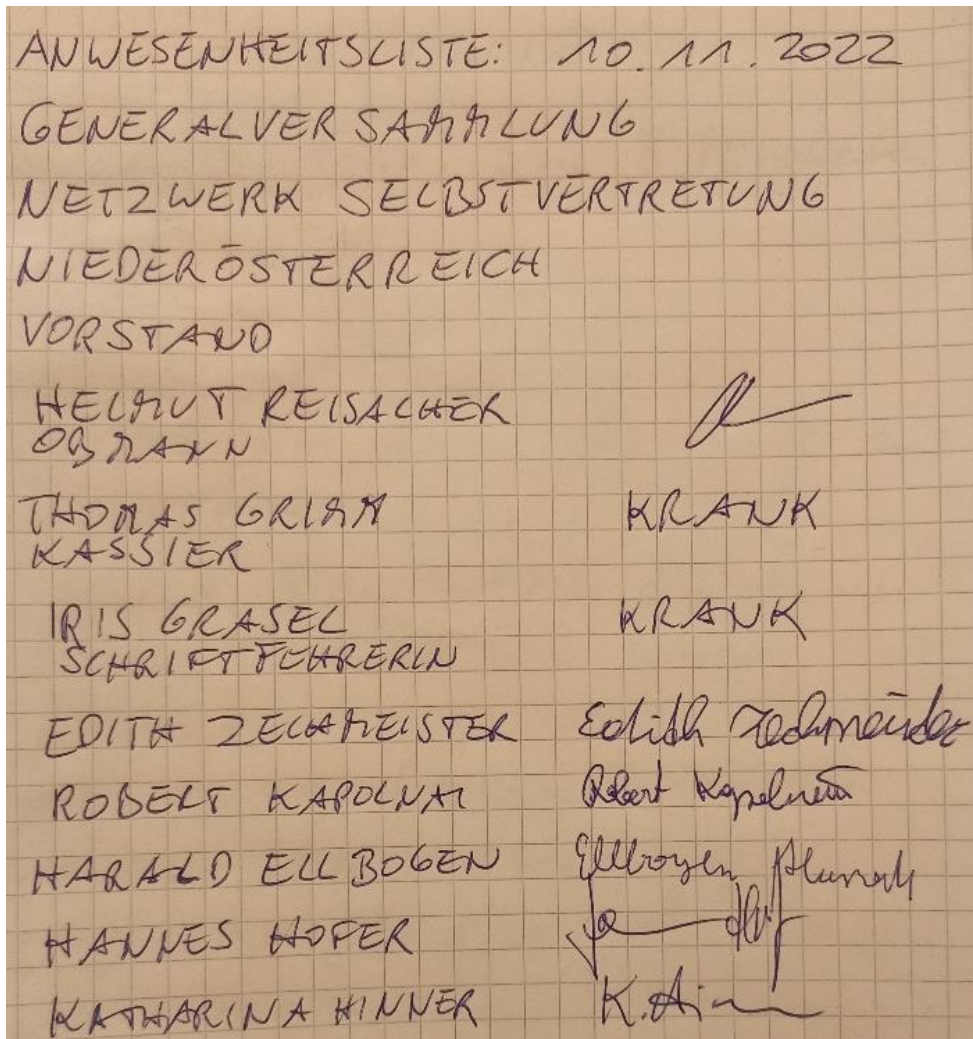 ANWESENHEITSLISTE: 10.11.2022
GENERALVERSAMMLUNG
NETZWERK SELBSTVERTRETUNG
NIEDERÖSTERREICH
VORSTAND
HELMUT REISACHER
OBMANN
THOMAS GRIMM KRANK
KASSIER
IRIS GRASEL KRANK
SCHRIFTFÜHRERIN
EDITH ZECHMEISTER Edith Zechmeister
ROBERT KAPOLNAI Robert
HARALD ELLBOGEN Ellbogen
HANNES HOFER
KATHARINA HINNER K.